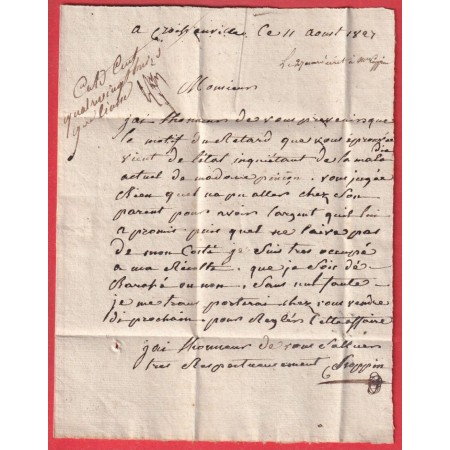 a croissanville Ce 11 aoust 1827
Monsieur
jai lhonneur de vous prevenir que
le motif du Retard que vous éprouvé
vient de létat inquiétant de la mala die
actuel de madame vous jugée
Bien quel na pu aller chez Son
parent pour avoir largent quil lui
a promis puis quel ne laive pas
de mon Coste je Suis tres occupé
a ma Récolte que je Sois dé
Barasé ou non Sans nul faute
je me transporterai chez vous vendre
di prochain pour Reglér Cette affaire
jai lhonneur de vous Saluer
tres Respectueusement